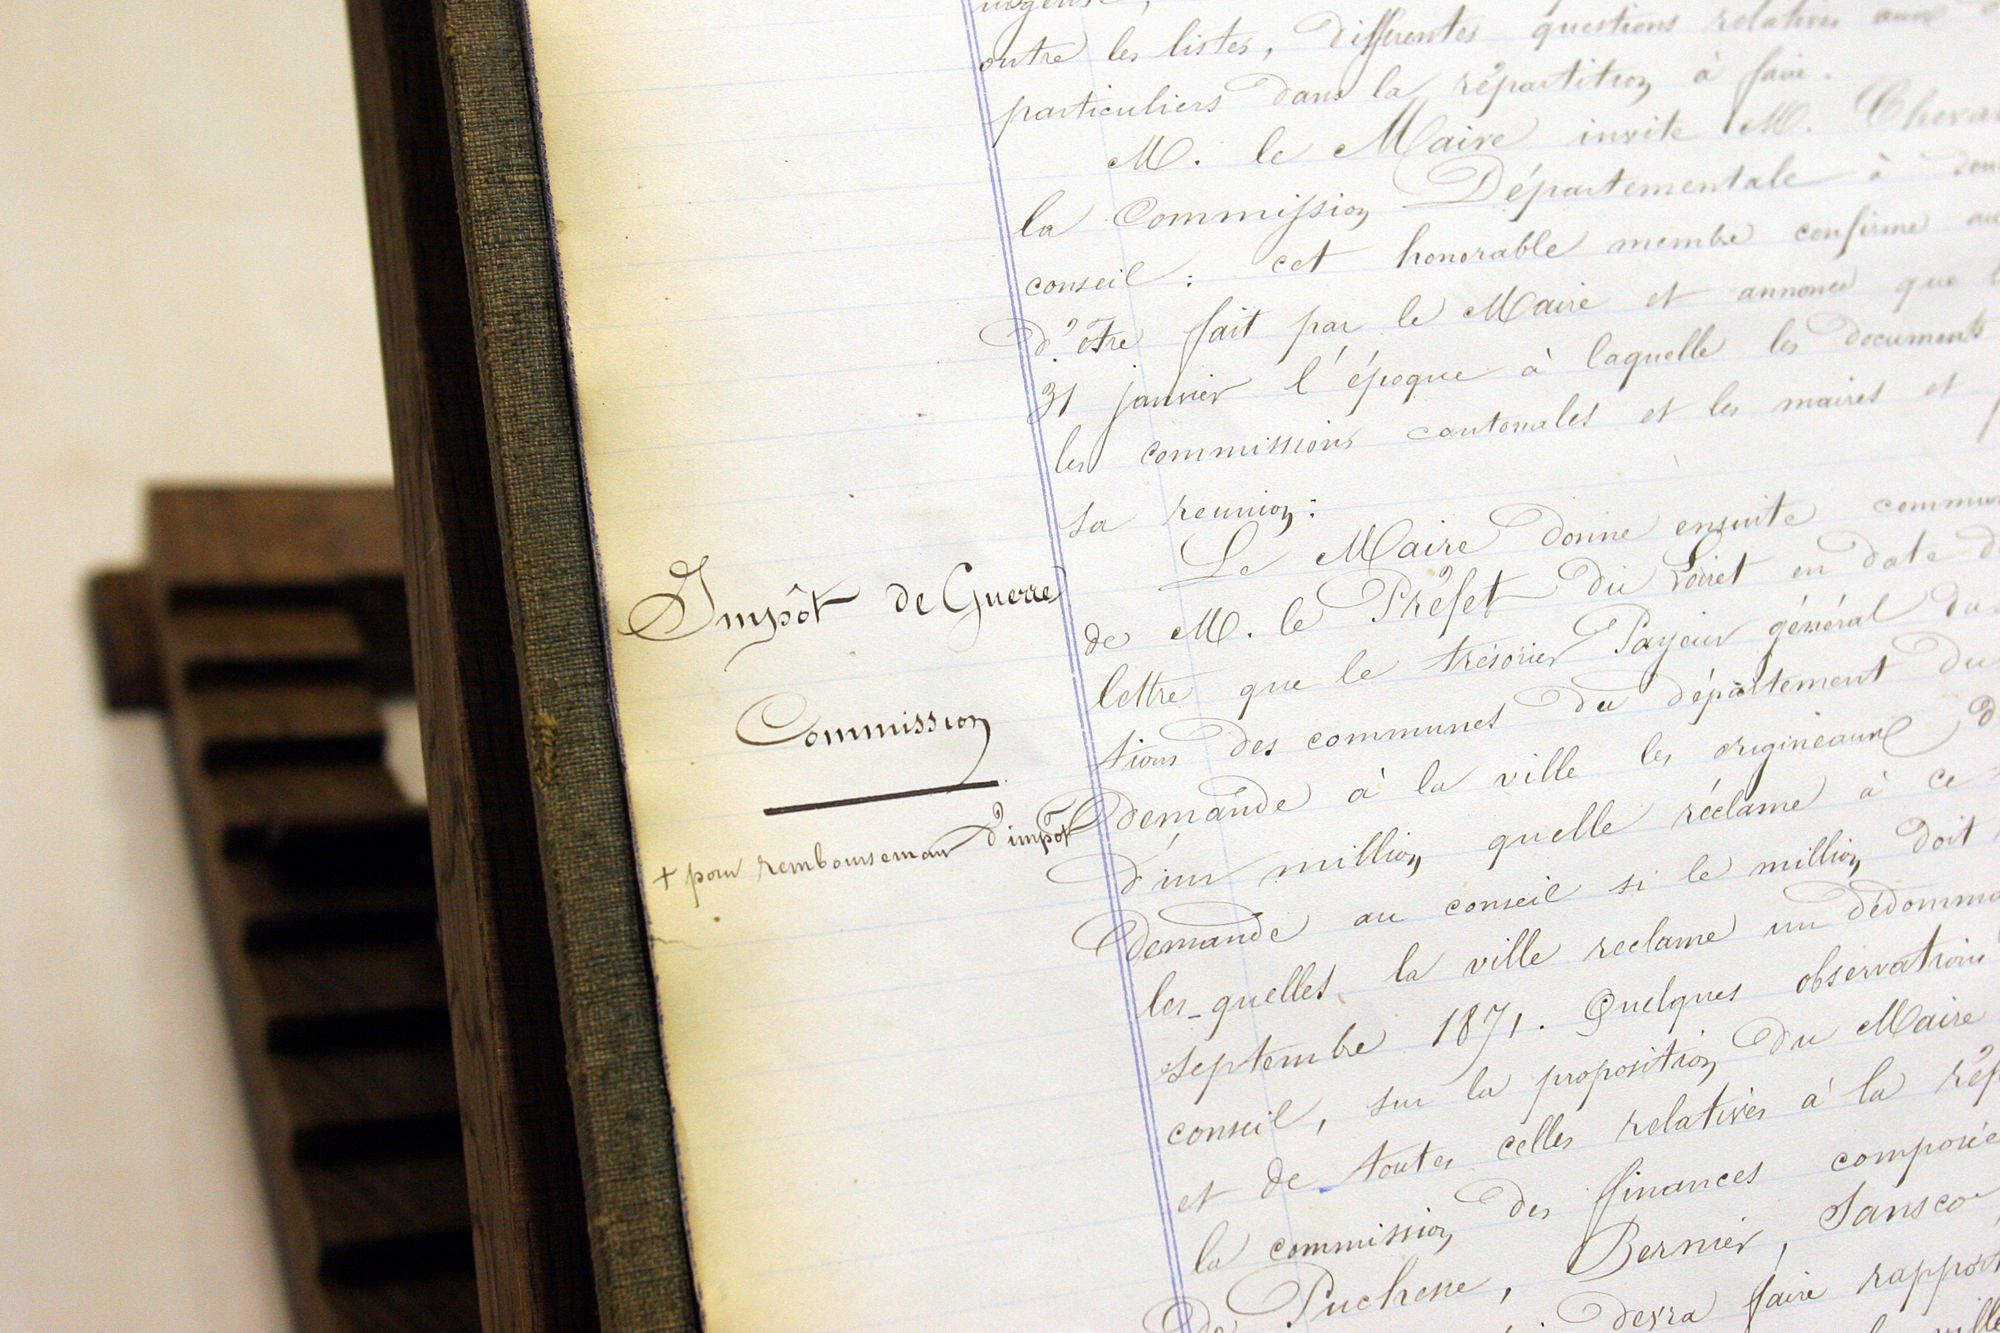 outre les listes, différentes questions relatives aux
particuliers dans la répartition à faire.
M. le Maire invite M. Cheva
la Commission Départementale à
conseil : cet honorable membre confirme
d'être fait par le Maire et annonce que
31 janvier l'époque à laquelle les documents
les commissions cantonales et les maires et
sa reunion :
Le Maire donne ensuite commun
Impôt de Guerre
de M. le Préfet du Loiret en date d
lettre que le trésorier Payeur général du
Commission
tions des communes du département du
demande à la ville les origineaux d
+ pour remboursement d'impôt
d'un million quelle réclame à ce
demande au conseil si le million doit
les-quelles la ville reclame un dédomma
septembre 1871. Quelques observations
conseil, sur la proposition du Maire
et de toutes celles relatives à la rép
la commission des finances composée
de Puchesse, Bernier, Sansco
devra faire rapport
ville